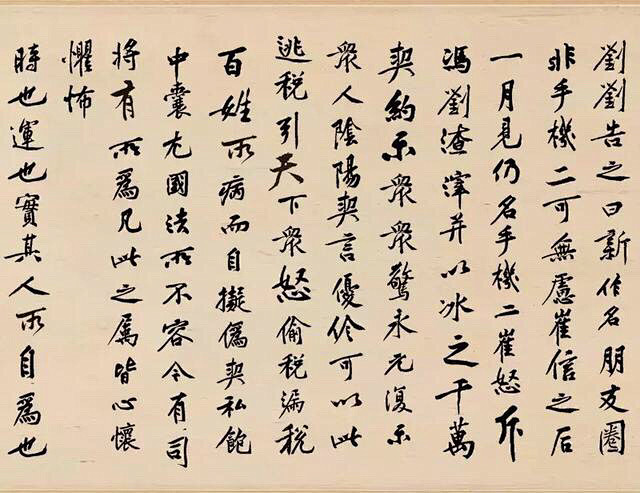 劉劉告之曰新作名朋友圈
非手機二可無慮崔信之后
一月見仍名手機二崔怒斥
馮劉渣滓并以冰之千萬
契約示衆衆驚永元復示
衆人陰陽契言優伶可以此
逃税引天下衆怒偷税漏税
百姓所病而自擬僞契私飽
中囊尤國法所不容今有司
將有所爲凡此之属皆心懷
懼怖
時也運也實其人所自爲也